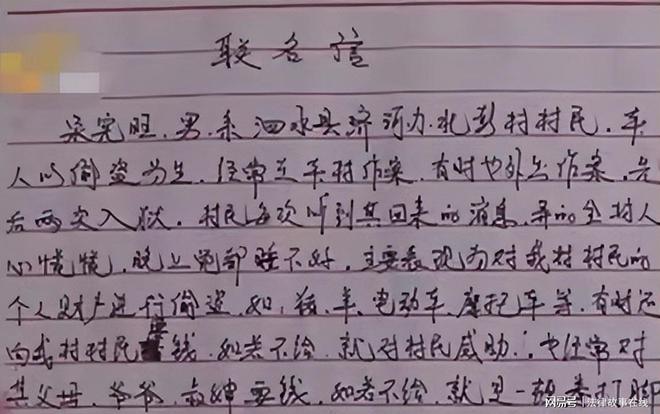 联名信
吴宪旺，男，系泗水县济河办北彭村村民，本
人以偷盗为生，经常在本村作案，有时也外出作案，先
后两次入狱，村民每次听到其回来的消息，弄的全村人
心慌慌，晚上觉都睡不好，主要表现为对我村村民的
个人财产进行偷盗，如，猪、羊、电动车、摩托车等，有时还
向我村村民要钱，如若不给，就对村民威胁，也经常对
其父母、爷爷、叔婶要钱，如若不给，就是一顿拳打脚
网易号 | 法律故事在线